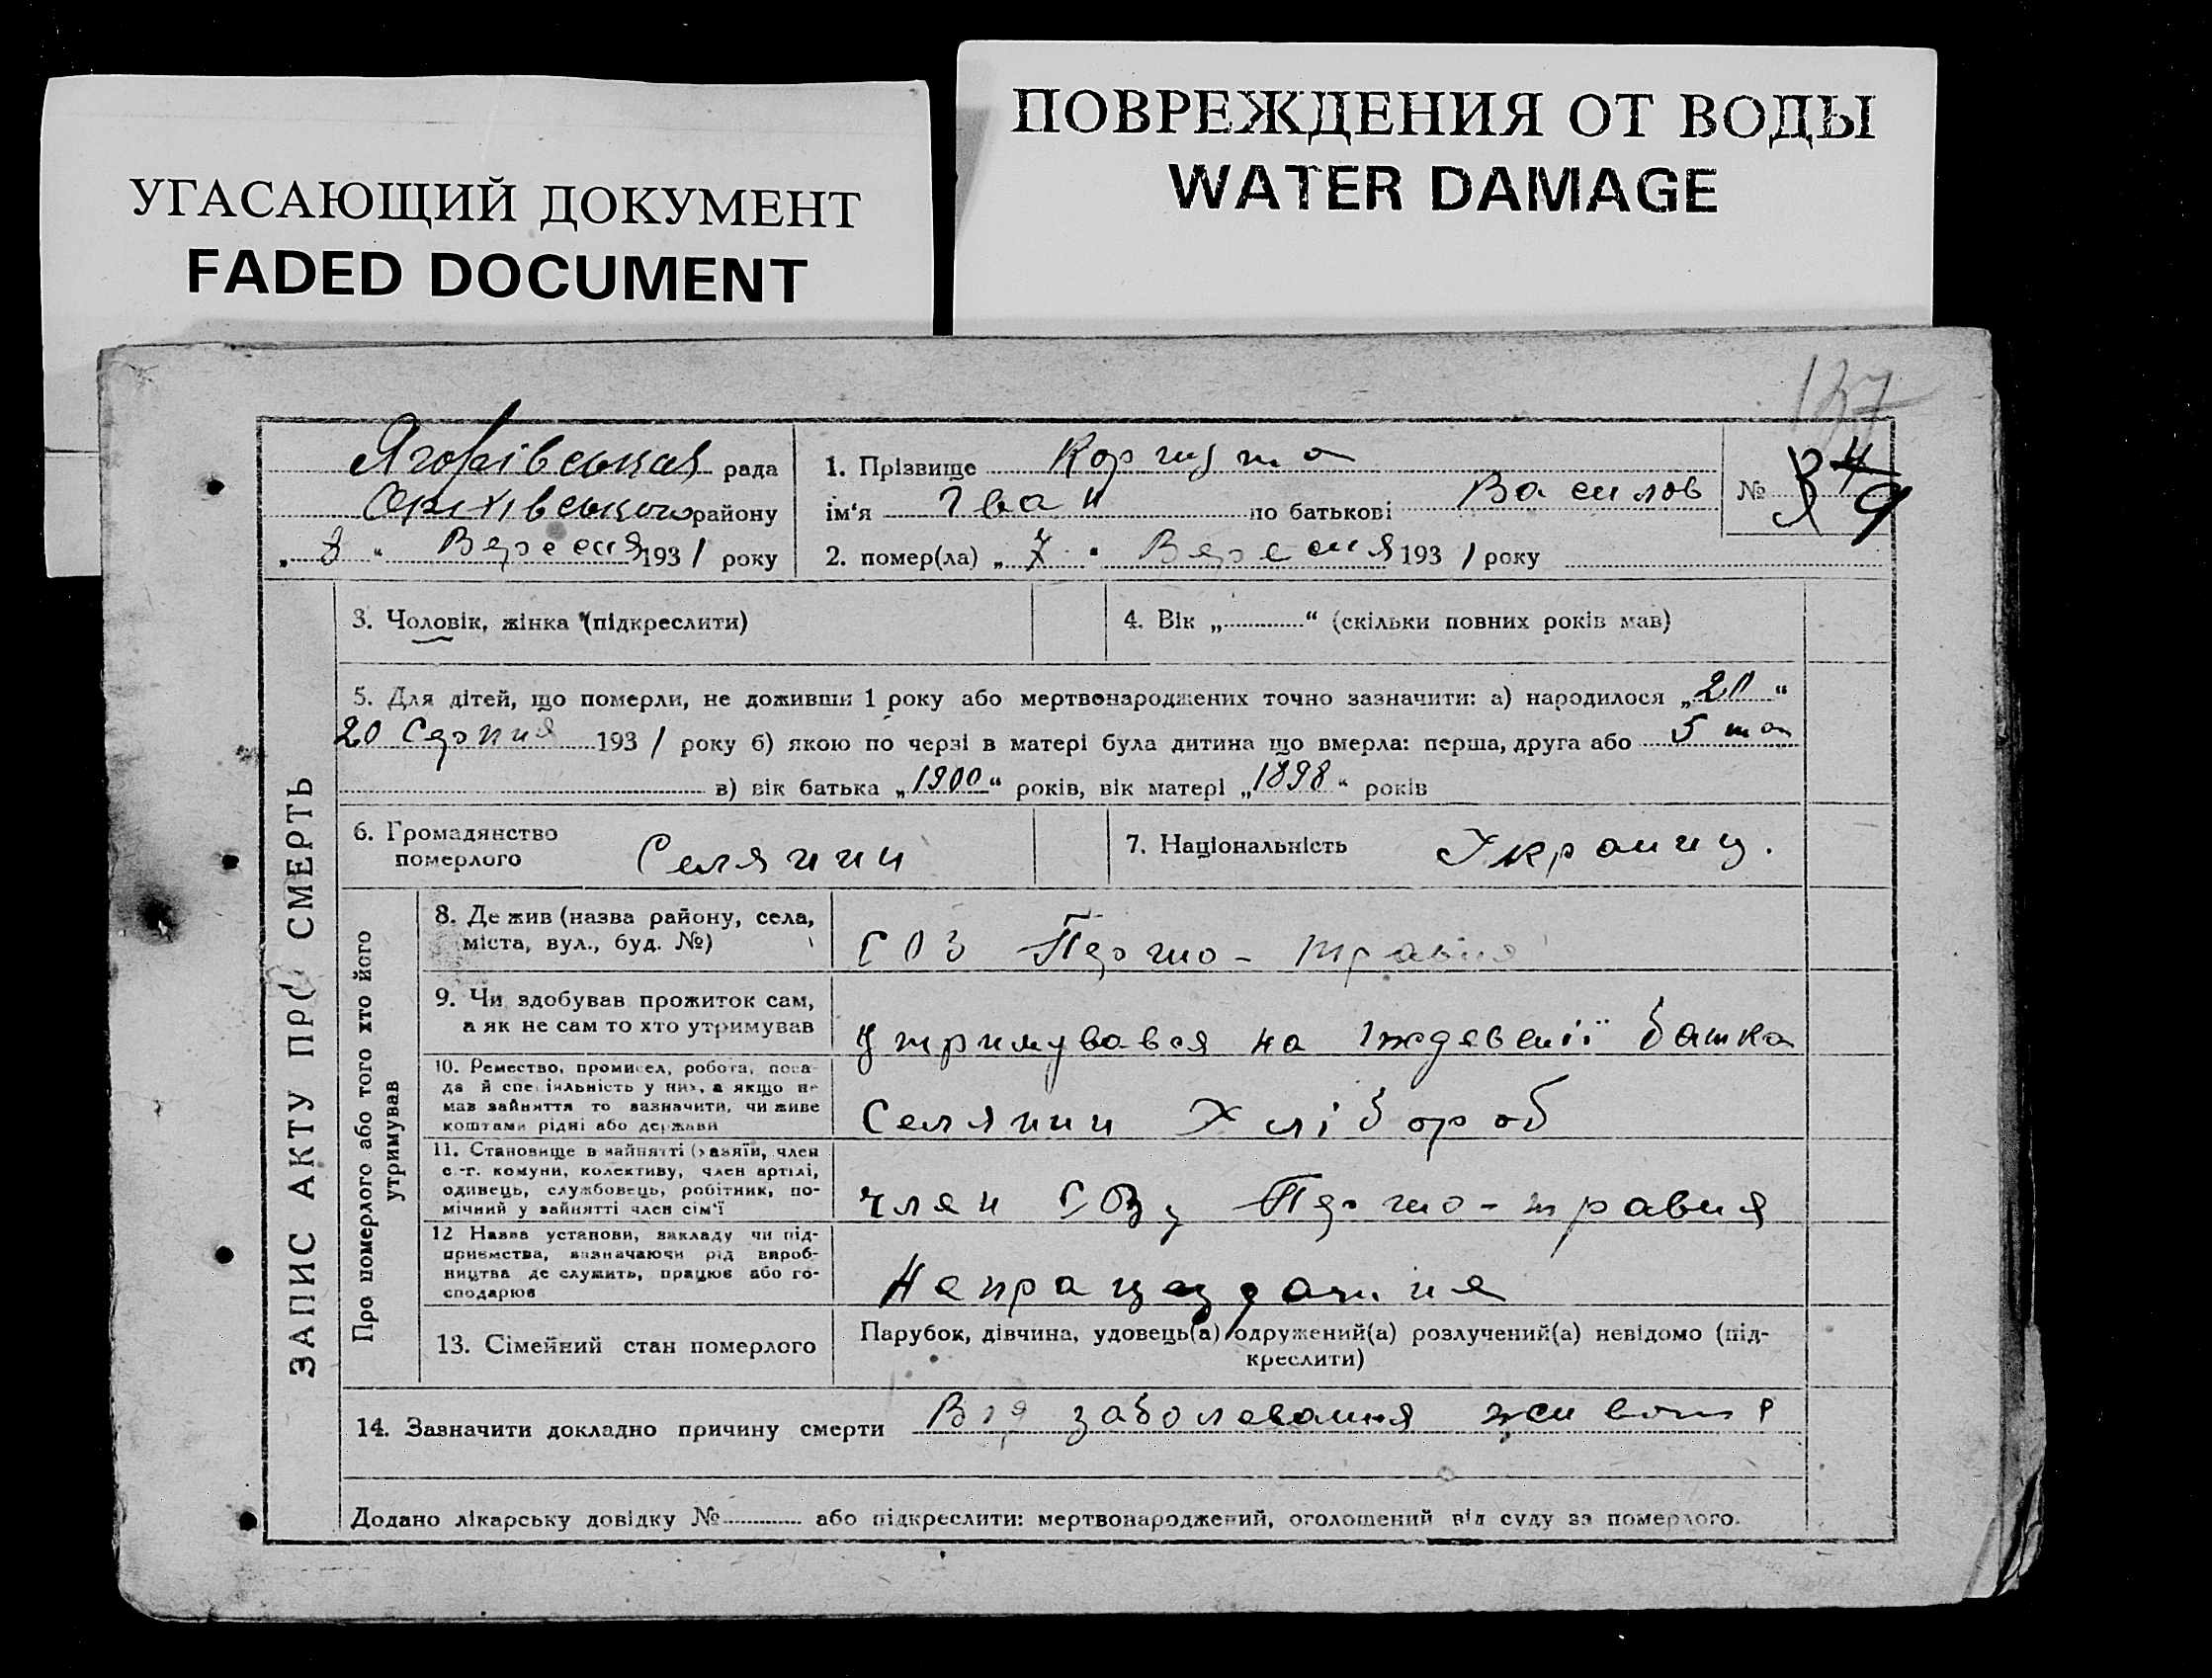 УГАСАЮЩИЙ ДОКУМЕНТ
FADED DOCUMENT
ПОВРЕЖДЕНИЯ ОТ ВОДЫ
WATER DAMAGE
137
рада
району
„ 8 “ Вересня 1931 року
1. Прізвище
ім'я Іван по батькові Василов
2. помер(ла) „ 7 " Вересня 1931 року
№ 9
ЗАПИС АКТУ ПРО СМЕРТЬ
3. Чоловік, жінка (підкреслити)
4. Вік „ “ (скільки повних років мав)
5. Для дітей, що померли, не доживши 1 року або мертвонароджених точно зазначити: а) народилося „20“
20 Серпня 1931 року б) якою по черзі в матері була дитина що вмерла: перша, друга або 5 та
в) вік батька „1900“ років, вік матері „1898“ років
6. Громадянство
померлого
Селянин
7. Національність Украинц.
Про померлого або того хто його
утримував
8. Де жив (назва району, села,
міста, вул., буд. №)
СОЗ Першо-травня
9. Чи здобував прожиток сам,
а як не сам то хто утримував
Утримувався на Іждевенії батка
10. Ремество, промисел, робота, поса-
да й спеціяльність у них, а якщо не
мав зайняття то зазначити, чи живе
коштами рідні або держави
Селянин Хлібороб
11. Становище в зайнятті (хазяїн, член
с.-г. комуни, колективу, член артілі,
одинець, службовець, робітник, по-
мічний у зайнятті член сім'ї
член СОЗу Першо-травня
12 Назва установи, закладу чи під-
приємства, зазначаючи рід вироб-
ництва де служить, працює або го-
сподарює
13. Сімейний стан померлого
Парубок, дівчина, удовець(а) одружений(а) розлучений(а) невідомо (під-
креслити)
14. Зазначити докладно причину смерти Від заболевання живота
Додано лікарську довідку № або підкреслити: мертвонароджений, оголошений від суду за померлого.